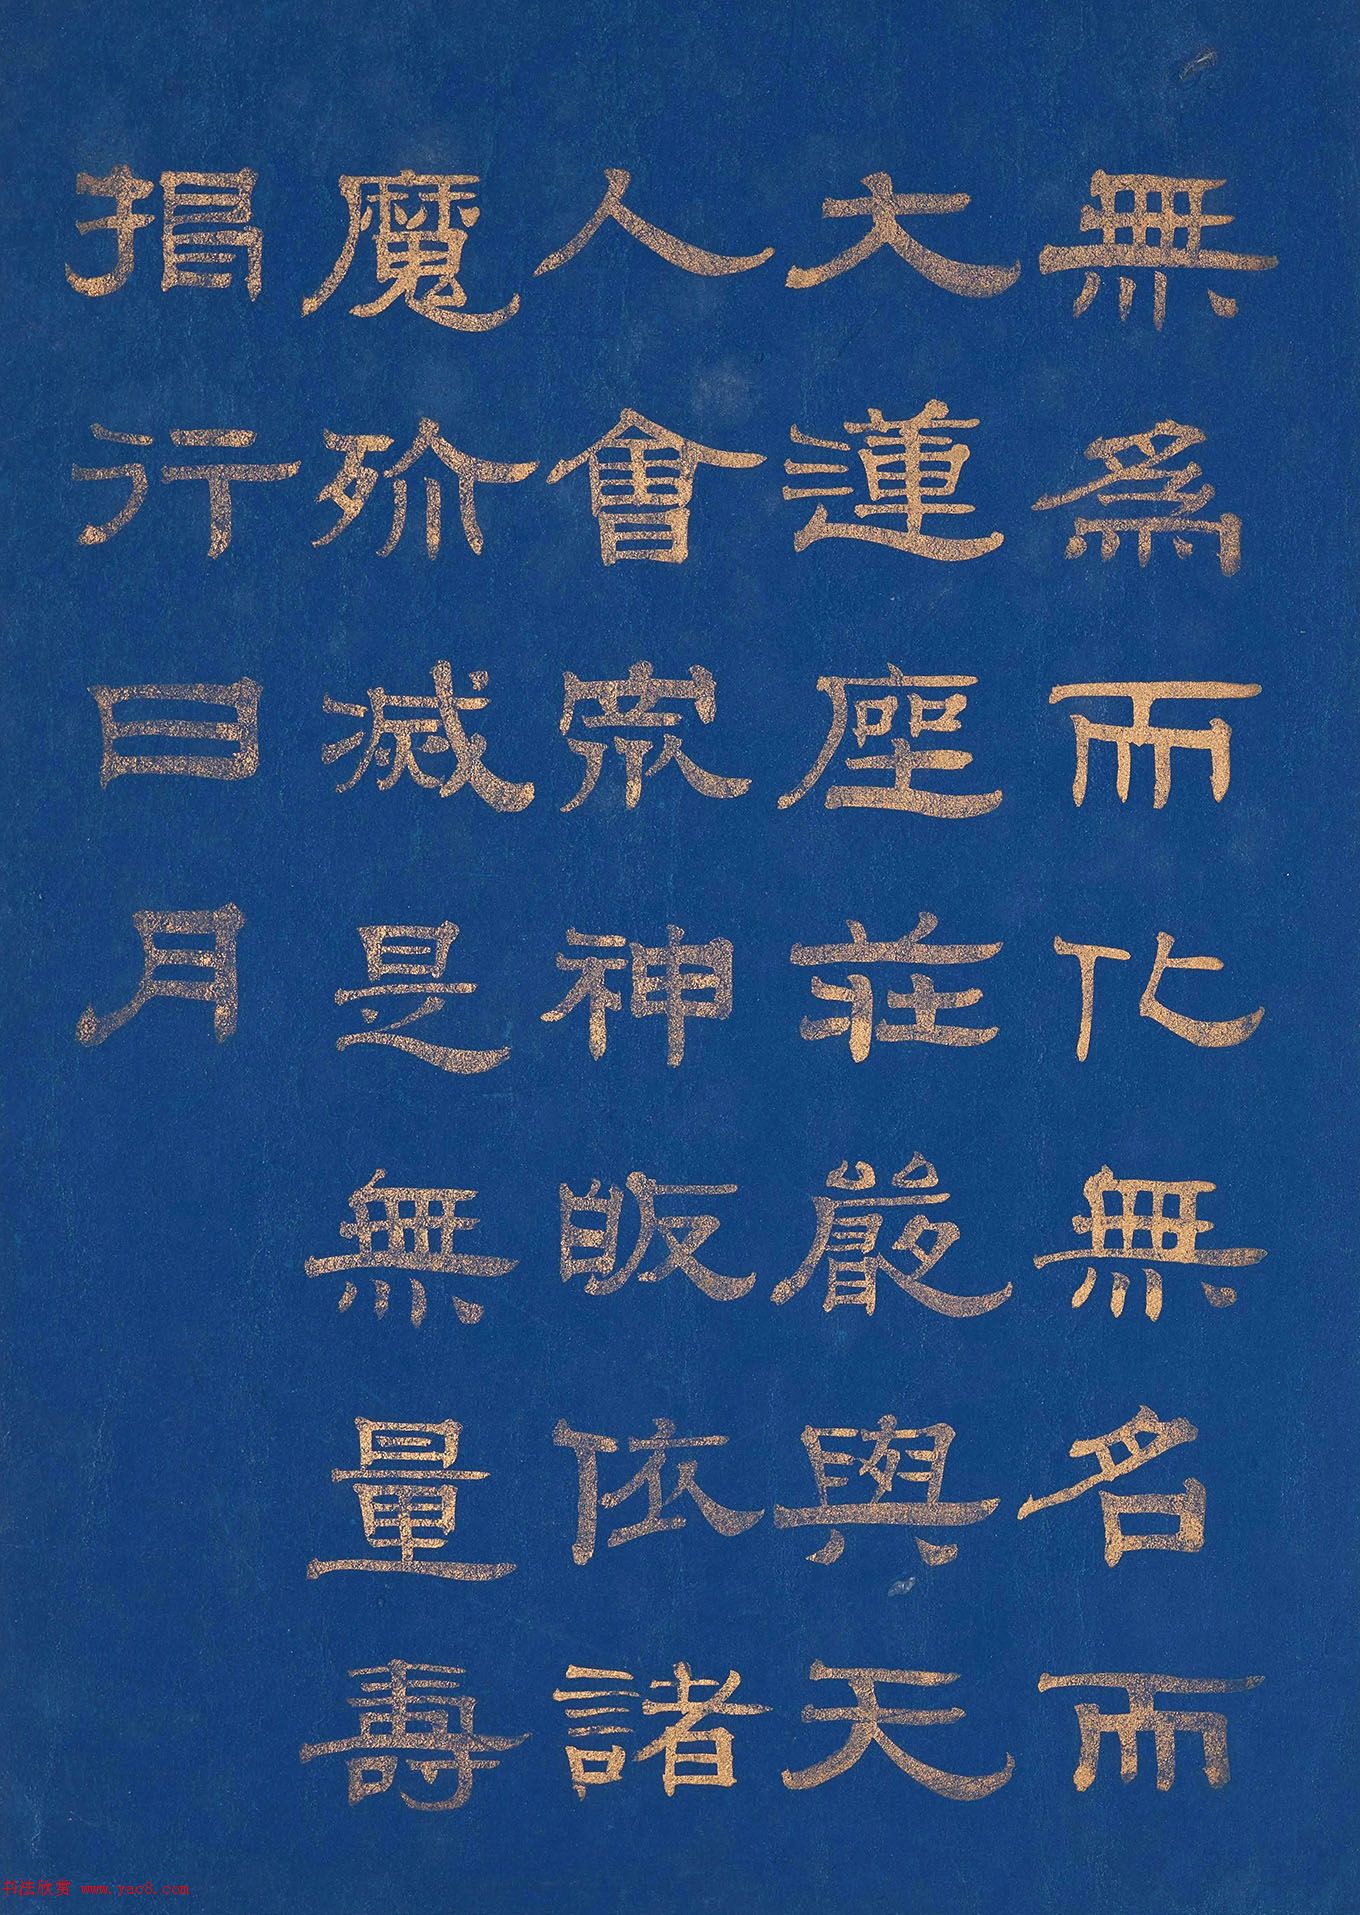 無爲而化無名而
大蓮座莊嚴與天
人會眾神皈依諸
魔殄滅是無量壽
行日月
书法欣赏 www.yac8.com